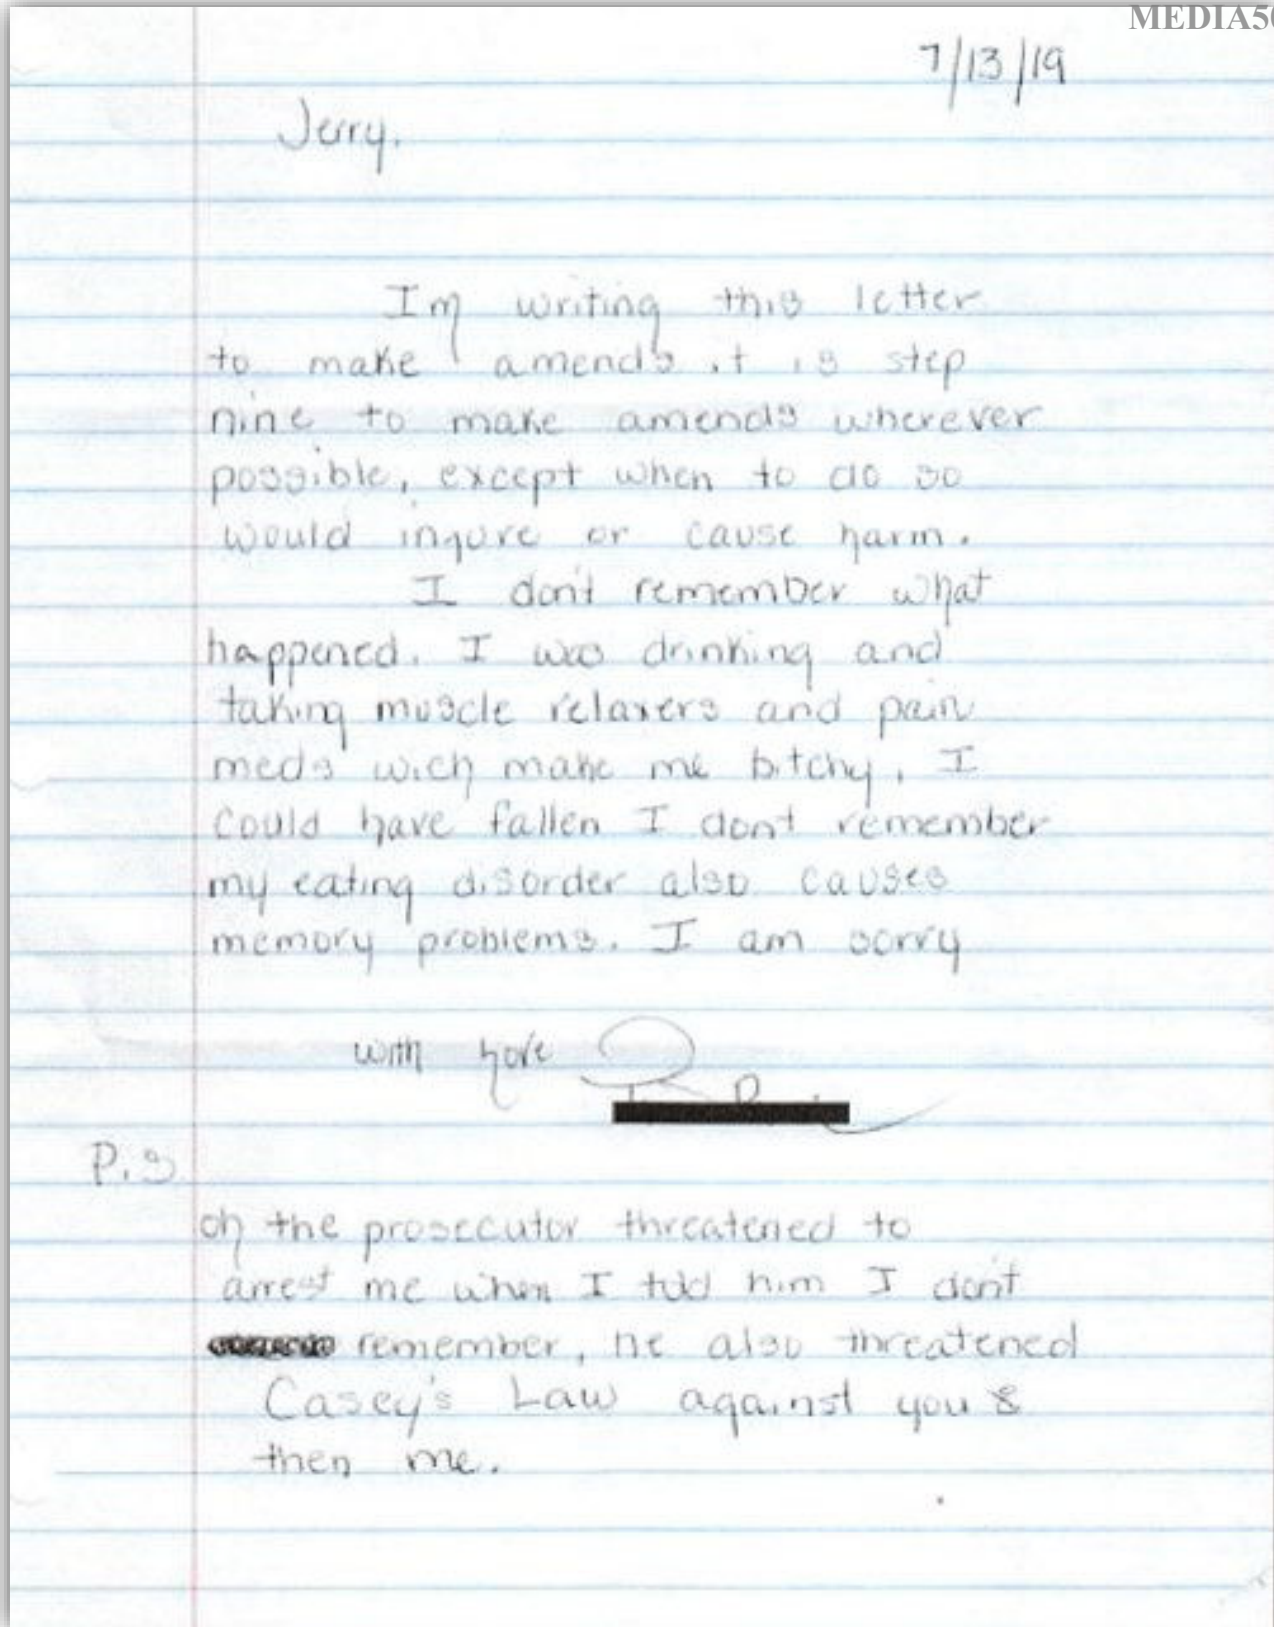 MEDIA50
7/13/19
Jerry,
Im writing this letter
to make amends it is step
nine to make amends wherever
possible, except when to do so
would ingure or cause harm.
I don't remember what
happened. I was drinking and
taking muscle relaxers and pain
meds wich make me bitchy, I
could have fallen I dont remember
my eating disorder also causes
memory problems. I am sorry
with love
P.S
oh the prosecutor threatened to
arrest me when I told him I don't
remember, he also threatened
Casey's Law against you &
then me.